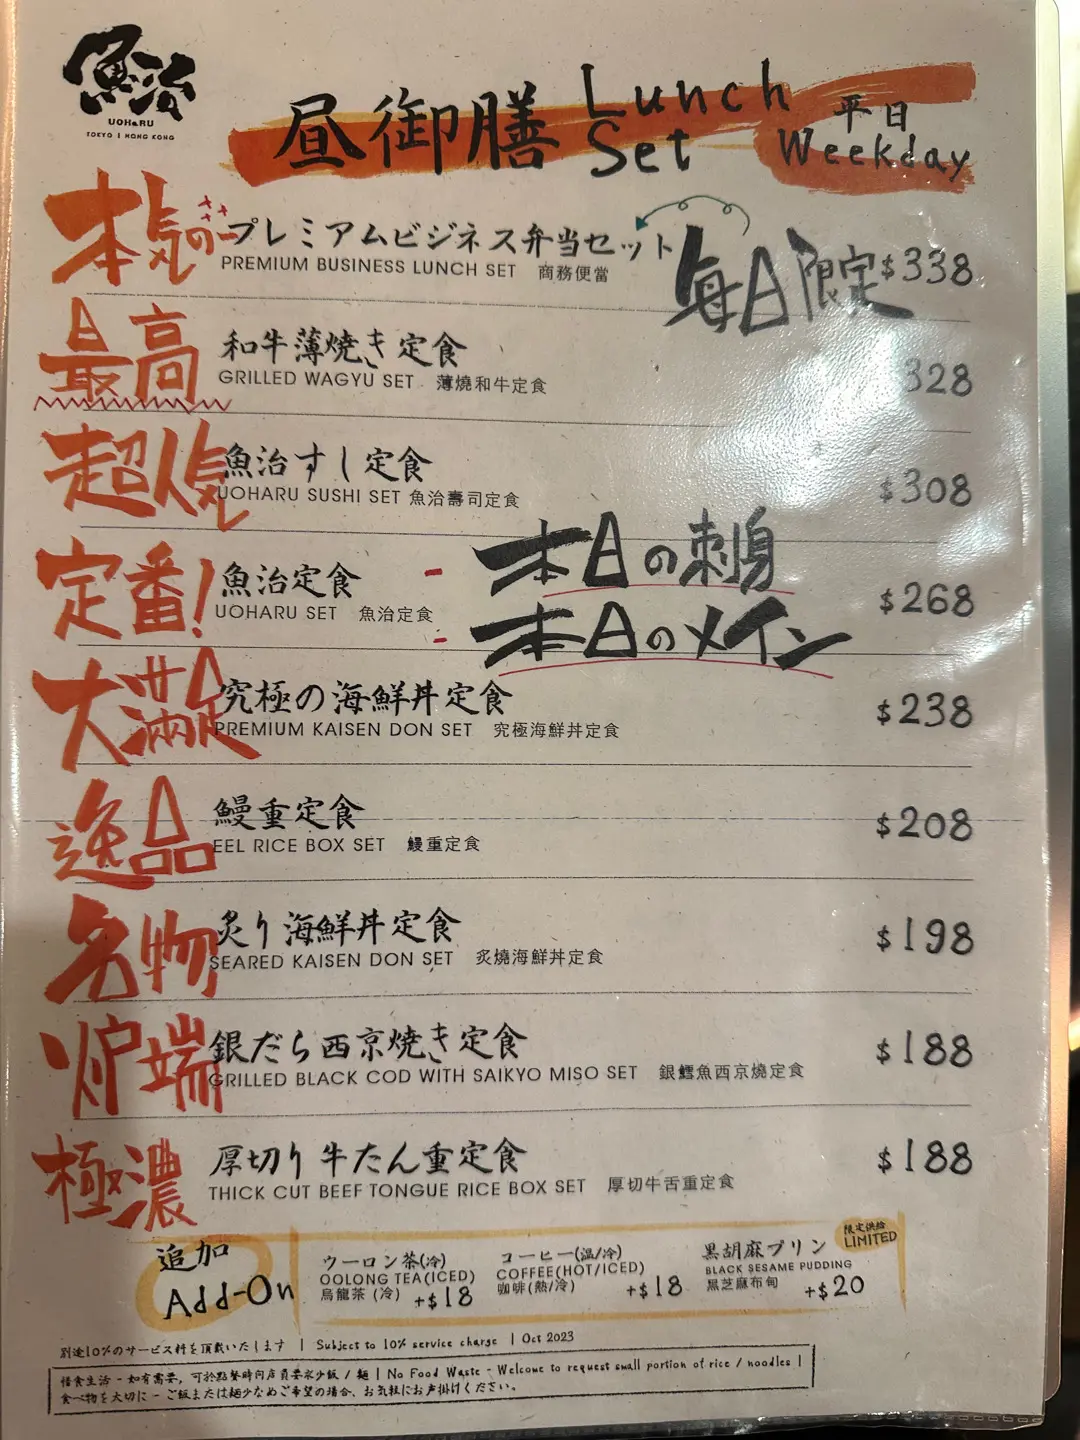 魚治
UOHARU
TOKYO | HONG KONG
昼御膳 Lunch Set
平日 Weekday
本気の プレミアムビジネス弁当セット
PREMIUM BUSINESS LUNCH SET 商務便當
毎日限定
$338
最高 和牛薄焼き定食
GRILLED WAGYU SET 薄燒和牛定食
328
超人気 魚治すし定食
UOHARU SUSHI SET 魚治壽司定食
$308
定番! 魚治定食
UOHARU SET 魚治定食
- 本日の刺身
- 本日のメイン
$268
大満足 究極の海鮮丼定食
PREMIUM KAISEN DON SET 究極海鮮丼定食
$238
逸品 鰻重定食
EEL RICE BOX SET 鰻重定食
$208
名物 炙り海鮮丼定食
SEARED KAISEN DON SET 炙燒海鮮丼定食
$198
炉端 銀だら西京焼き定食
GRILLED BLACK COD WITH SAIKYO MISO SET 銀鱈魚西京燒定食
$188
極濃 厚切り牛たん重定食
THICK CUT BEEF TONGUE RICE BOX SET 厚切牛舌重定食
$188
追加
Add-On
ウーロン茶(冷)
OOLONG TEA(ICED)
烏龍茶(冷) +$18
コーヒー(温/冷)
COFFEE(HOT/ICED)
咖啡(熱/冷) +$18
黒胡麻プリン
BLACK SESAME PUDDING
黑芝麻布甸 +$20
限定供給
LIMITED
別途10%のサービス料を頂戴いたします | Subject to 10% service charge | Oct 2023
惜食生活 - 如有需要, 可於點餐時向店員要求少飯 / 麵 | No Food Waste - Welcome to request small portion of rice / noodles |
食べ物を大切に - ご飯または麺少なめご希望の場合、お気軽にお声掛けください。